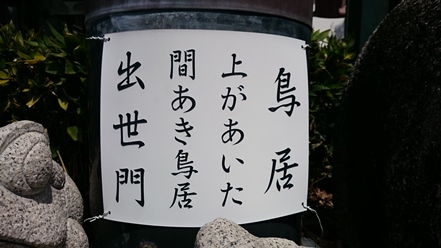 鳥居
上があいた
間あき鳥居
出世門